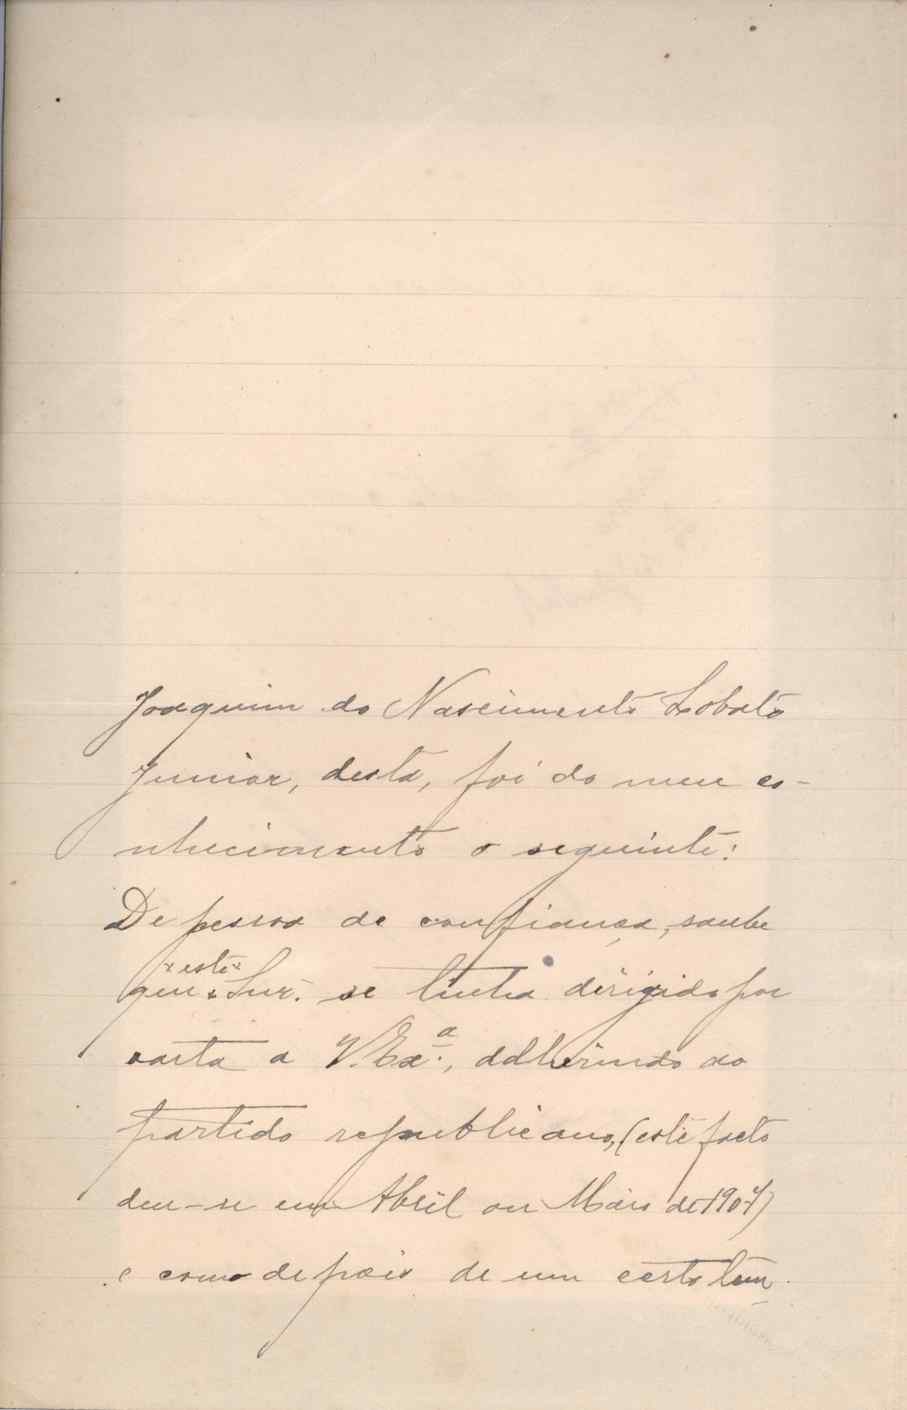 Joaquim do Nascimento Lobato
Junior, desta, foi do meu co-
nhecimento o seguinte:
De pessoa de confiança, soube
que este Snr. se tinha dirigido por
carta a V. Exª., adherindo ao
partido republicano, (este facto
deu-se em Abril ou Maio de 1907)
e como depois de um certo tem